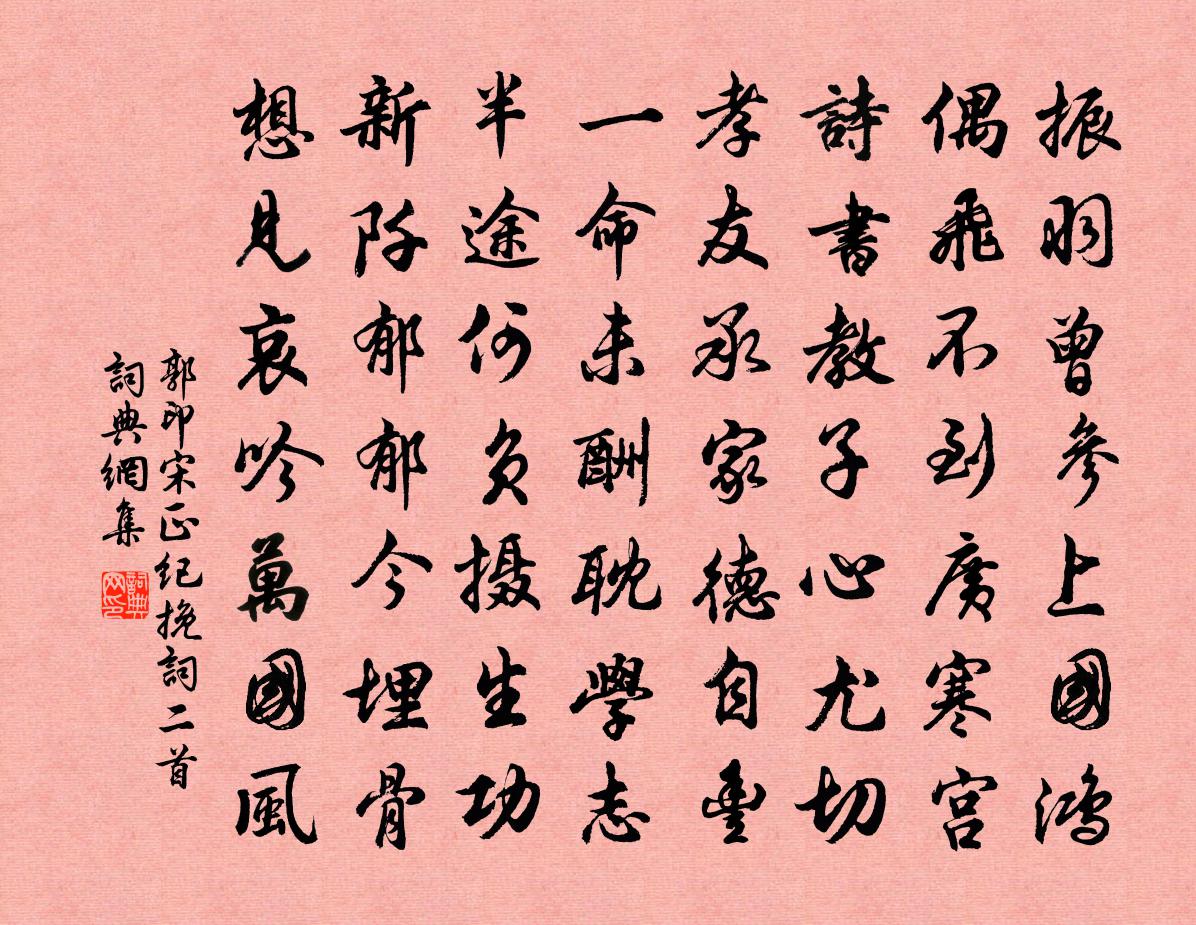 振羽曾參上國鴻
偶飛不到廣寒宮
詩書教子心尤切
孝友承家德自豐
一命未酬耽學志
半途何负摄生功
新阡郁郁今埋骨
想見哀吟萬國風
郭印宋正纪挽詞二首
詞典網集
詞典网印